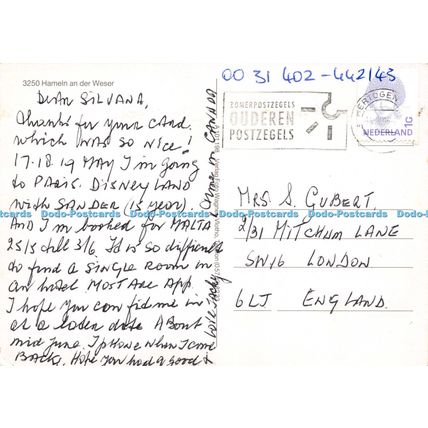 3250 Hameln an der Weser
DEAR SILVANA,
Thanks for your card.
which WAS SO NICE!
17.18.19 MAY I'm going
to PARIS. DISNEYLAND
with SANDER (15 years).
And I'm booked for MALTA
25/5 till 3/6. It is so difficult
to find a SINGLE ROOM in
an hotel MOST ARE APP.
I hope you can find me in
at a later date About
mid june. I phone when I come
BACK. Hope you had a good
time in CANADA
Love Jacky
00 31 402-442143
ZOMERPOSTZEGELS
OUDEREN
POSTZEGELS
NEDERLAND
MRS. S. GUBERT.
2/31 MITCHUM LANE
SW16 LONDON
6LJ ENGLAND.
Dodo-Postcards Dodo-Postcards Dodo-Postcards Dodo-Postcards